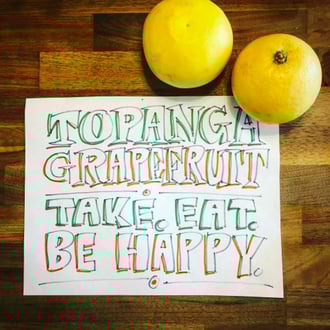 TOPANGA
GRAPEFRUIT
TAKE. EAT.
BE HAPPY.